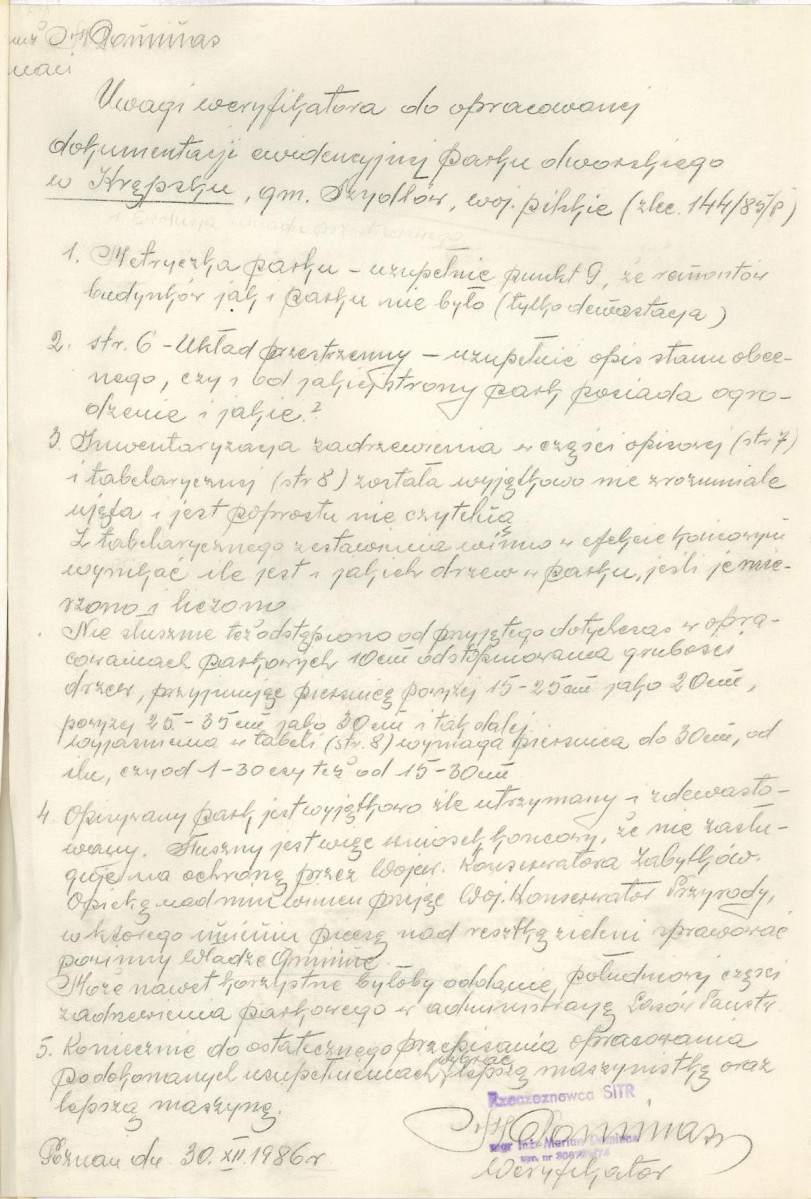 Uwagi weryfikatora do opracowanej
dokumentacji ewidencyjnej parku dworskiego
w Krępsku, gm. Szydłów, woj. pilskie (zlec. 144/85/P)
1. Metryczka parku – uzupełnić punkt 9, że remontów
budynków jak i parku nie było (tylko dewastacja)
2. str. 6 – Układ przestrzenny – uzupełnić opis stanu obec-
nego, czy i od jakiej strony park posiada ogro-
dzenie i jakie?
3. Inwentaryzacja zadrzewienia w części opisowej (str 7)
i tabelarycznej (str 8) została wyjątkowo nie zrozumiale
ujęta i jest poprostu nie czytelna
Z tabelarycznego zestawienia winno w efekcie końcowym
wynikać ile jest i jakich drzew w parku, jeśli je mie-
rzono i liczono
Nie słusznie też odstąpiono od przyjętego dotychczas w opra-
cowaniach parkowych 10cm odstopniowania grubości
drzew, przyjmując pierśnicę powyżej 15-25cm jako 20cm,
powyżej 25-35cm jako 30cm i tak dalej
wyjaśnienia w tabeli (str. 8) wymaga pierśnica do 30cm, od
ilu, czy od 1-30 czy też od 15-30cm
4. Opisywany park jest wyjątkowo źle utrzymany i zdewasto-
wany. Słuszny jest więc wniosek końcowy, że nie zasłu-
guje na ochronę przez Wojew. Konserwatora Zabytków.
Opiekę nad nim winien przejąć Woj. Konserwator Przyrody,
w którego imieniu pieczę nad resztką zieleni sprawować
powinny Władze Gminne.
Może nawet korzystne byłoby oddanie południowej części
zadrzewienia parkowego w administrację Lasów Państw.
5. Koniecznie do ostatecznego przepisania opracowania
po dokonanych uzupełnieniach wybrać lepszą maszynistkę oraz
lepszą maszynę.
Rzeczoznawca SITR
mgr inż. Marian
Poznań dn. 30.XII.1986 r
Weryfikator